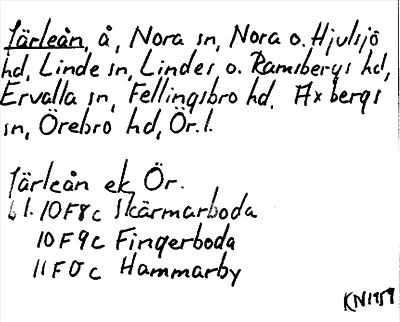 Järleån, å, Nora sn, Nora o. Hjulsjö
hd, Linde sn, Lindes o. Ramsbergs hd,
Ervalla sn, Fellingsbro hd, Axbergs
sn, Örebro hd, Ör. l.
Järleån ek Ör.
bl. 10F8c Skärmarboda
10F9c Fingerboda
11F0c Hammarby
KN1959